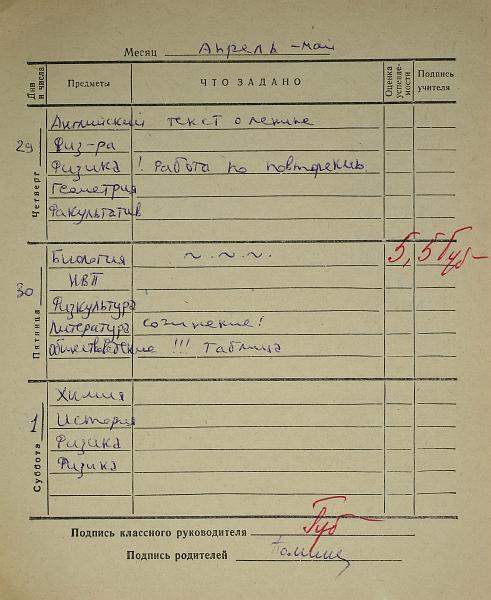 Месяц Апрель - май
Дни и числа Предметы ЧТО ЗАДАНО Оценка успевае-мости Подпись учителя
29 Четверг
Английский текст о ленине
Физ-ра
Физика ! Работа по повторению
Геометрия
Факультатив
30 Пятница
Биология ~.~.~. 5, 5 Губ-
НВП
Физкультура
Литература сочинение!
Обществоведение !!! таблица
1 Суббота
Химия
История
Физика
Физика
Подпись классного руководителя Губ
Подпись родителей